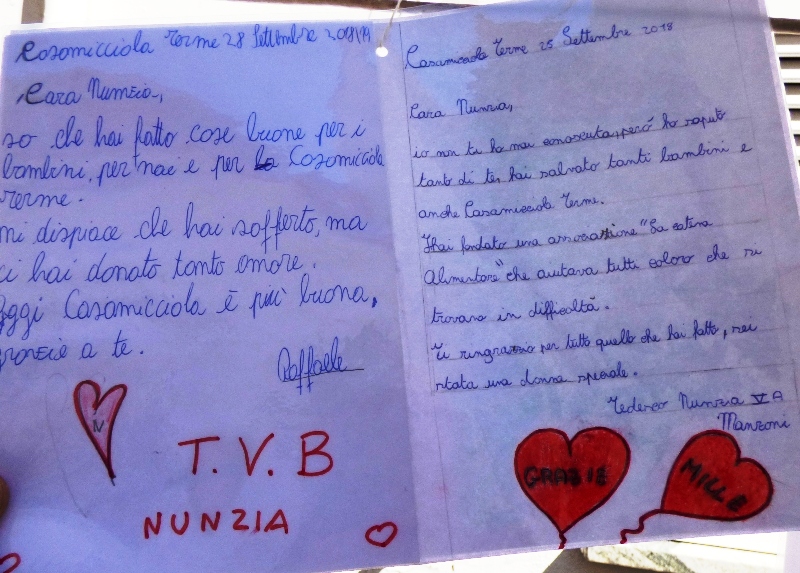 Casamicciola Terme 28 Settembre 2018
Cara Nunzia,
so che hai fatto cose buone per i
bambini, per noi e per la Casamicciola
Terme.
mi dispiace che hai sofferto, ma
ci hai donato tanto amore.
Oggi Casamicciola è più buona,
grazie a te.
Raffaele
N
T.V.B
NUNZIA
Casamicciola Terme 25 Settembre 2018
Cara Nunzia,
io non ti ho mai conosciuta, però ho saputo
tanto di te, hai salvato tanti bambini e
anche Casamicciola Terme.
Hai fondato una associazione "La catena
Alimentare" che aiutava tutti coloro che si
trovano in difficoltà.
Ti ringrazio per tutto quello che hai fatto, sei
stata una donna speciale.
Nunzia V A
Manzoni
GRAZIE
MILLE